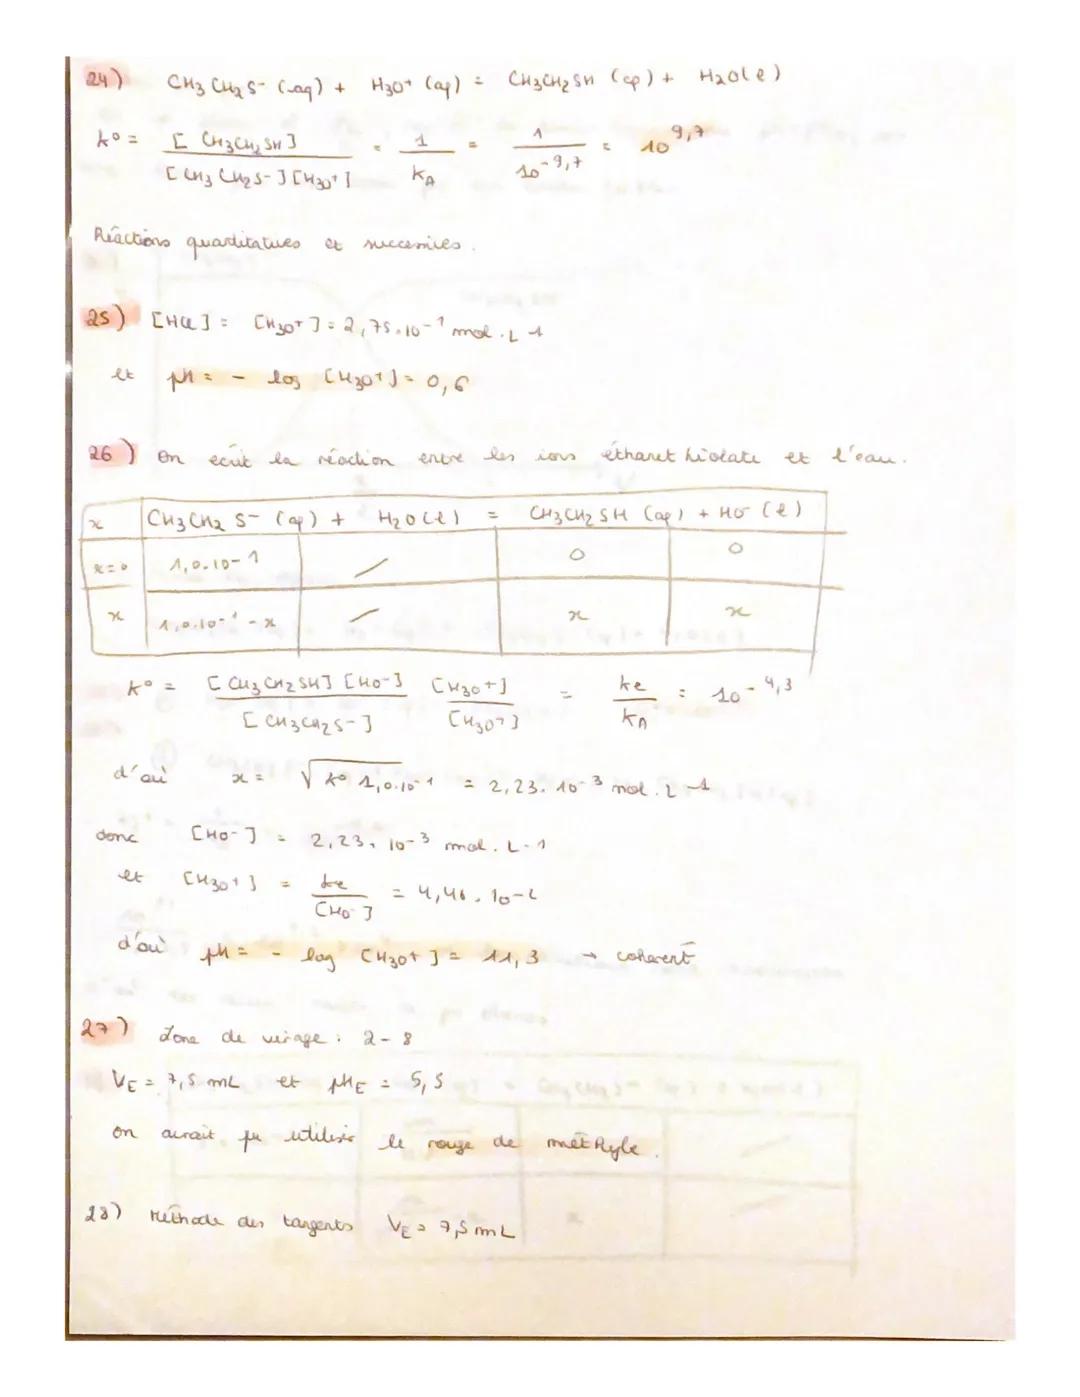 24) CH3CH2S- (aq) + H3O+ (aq) = CH3CH2SH (aq) + H2O(l)
K° = [CH3CH2SH] / [CH3CH2S-][H3O+] = 1 / KA = 1 / 10^-9,7 = 10^9,7
Réactions quantitatives et successives.
25) [HCl] = [H3O+] = 2,75.10^-1 mol.L-1
et pH = - log [H3O+] = 0,6
26) On écrit la réaction entre les ions éthanethiolate et l'eau.
x CH3CH2S- (aq) + H2O(l) = CH3CH2SH (aq) + HO- (l)
x=0 1,0.10-1 / 0 0
x 1,0.10-1 - x / x x
K° = [CH3CH2SH][HO-] / [CH3CH2S-] [H3O+] / [H3O+] = Ke / KA = 10^-4,3
d'où x = √K° 1,0.10-1 = 2,23.10-3 mol.L-1
donc [HO-] = 2,23.10-3 mol.L-1
et [H3O+] = Ke / [HO-] =
d'où pH = - log [H3O+] = 11,3 → cohérent
27) Zone de virage : 2-8
VE = 7,5 mL et pHE = 5,5
on aurait pu utiliser le rouge de méthyle.
28) Méthode des tangents VE = 7,5 mL